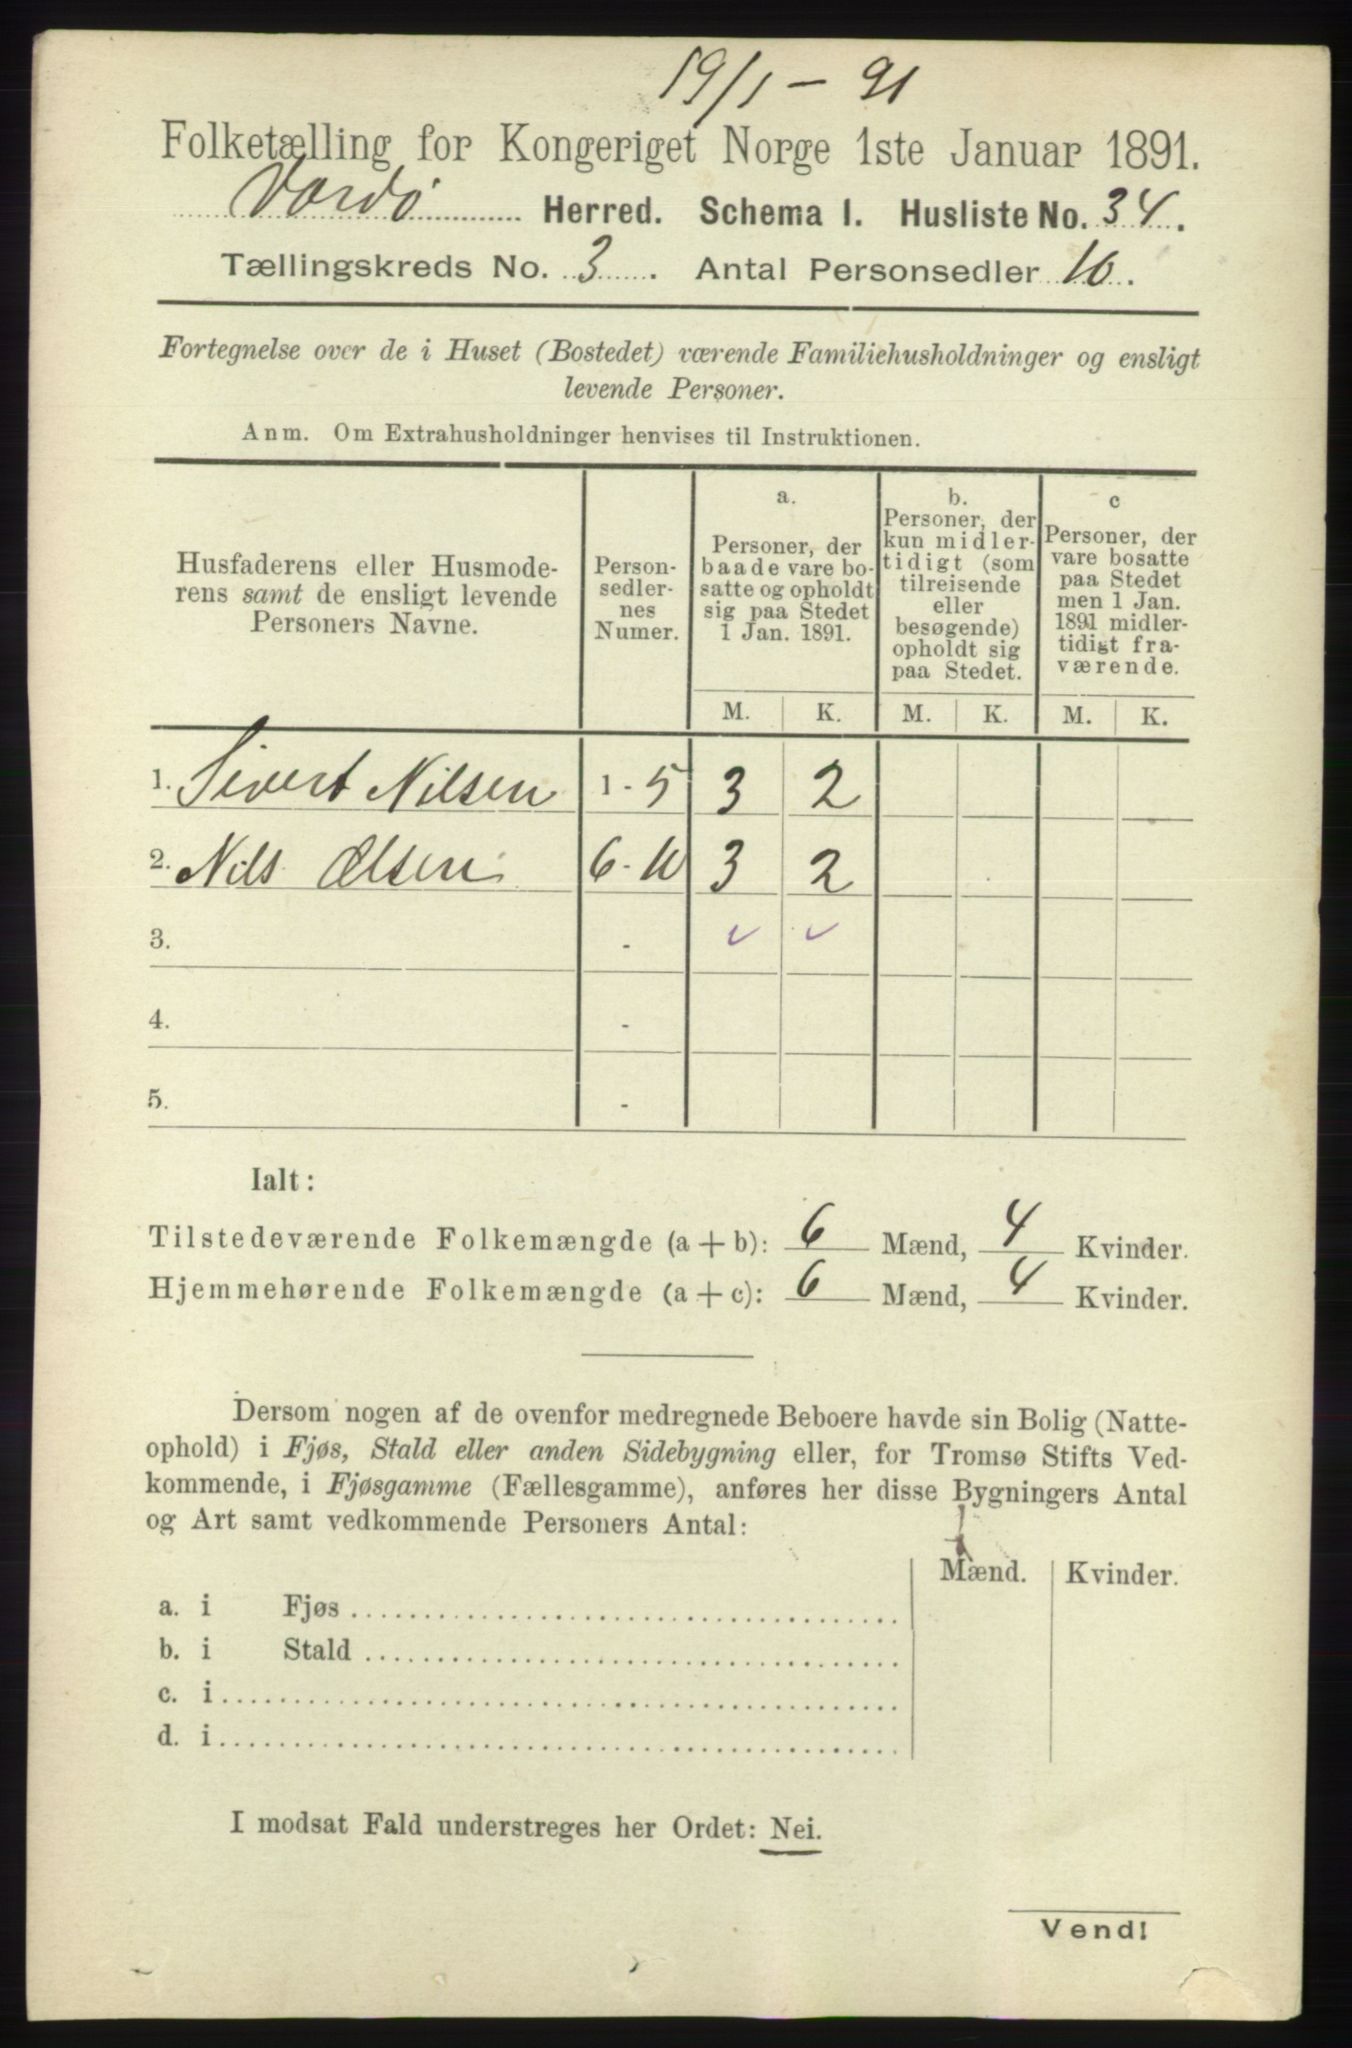 19/1 - 91
Folketælling for Kongeriget Norge 1ste Januar 1891.
Vardø Herred. Schema I. Husliste No. 34.
Tællingskreds No. 3. Antal Personsedler 10.
Fortegnelse over de i Huset (Bostedet) værende Familiehusholdninger og ensligt
levende Personer.
Anm. Om Extrahusholdninger henvises til Instruktionen.
Husfaderens eller Husmode-
rens samt de ensligt levende
Personers Navne.
Person-
sedler-
nes
Numer.
a.
Personer, der
baade vare bo-
satte og opholdt
sig paa Stedet
1 Jan. 1891.
b.
Personer, der
kun midler-
tidigt (som
tilreisende
eller
besøgende)
opholdt sig
paa Stedet.
c
Personer, der
vare bosatte
paa Stedet
men 1 Jan.
1891 midler-
tidigt fra-
værende.
M. K. M. K. M. K.
1. Sivert Nilsen 1 - 5 3 2
2. Nils Olsen 6 - 10 3 2
3. -
4. -
5. -
Ialt:
Tilstedeværende Folkemængde (a + b): 6 Mænd, 4 Kvinder.
Hjemmehørende Folkemængde (a + c): 6 Mænd, 4 Kvinder.
Dersom nogen af de ovenfor medregnede Beboere havde sin Bolig (Natte-
ophold) i Fjøs, Stald eller anden Sidebygning eller, for Tromsø Stifts Ved-
kommende, i Fjøsgamme (Fællesgamme), anføres her disse Bygningers Antal
og Art samt vedkommende Personers Antal:
Mænd. Kvinder.
a. i Fjøs
b. i Stald
c. i
d. i
I modsat Fald understreges her Ordet: Nei.
Vend!